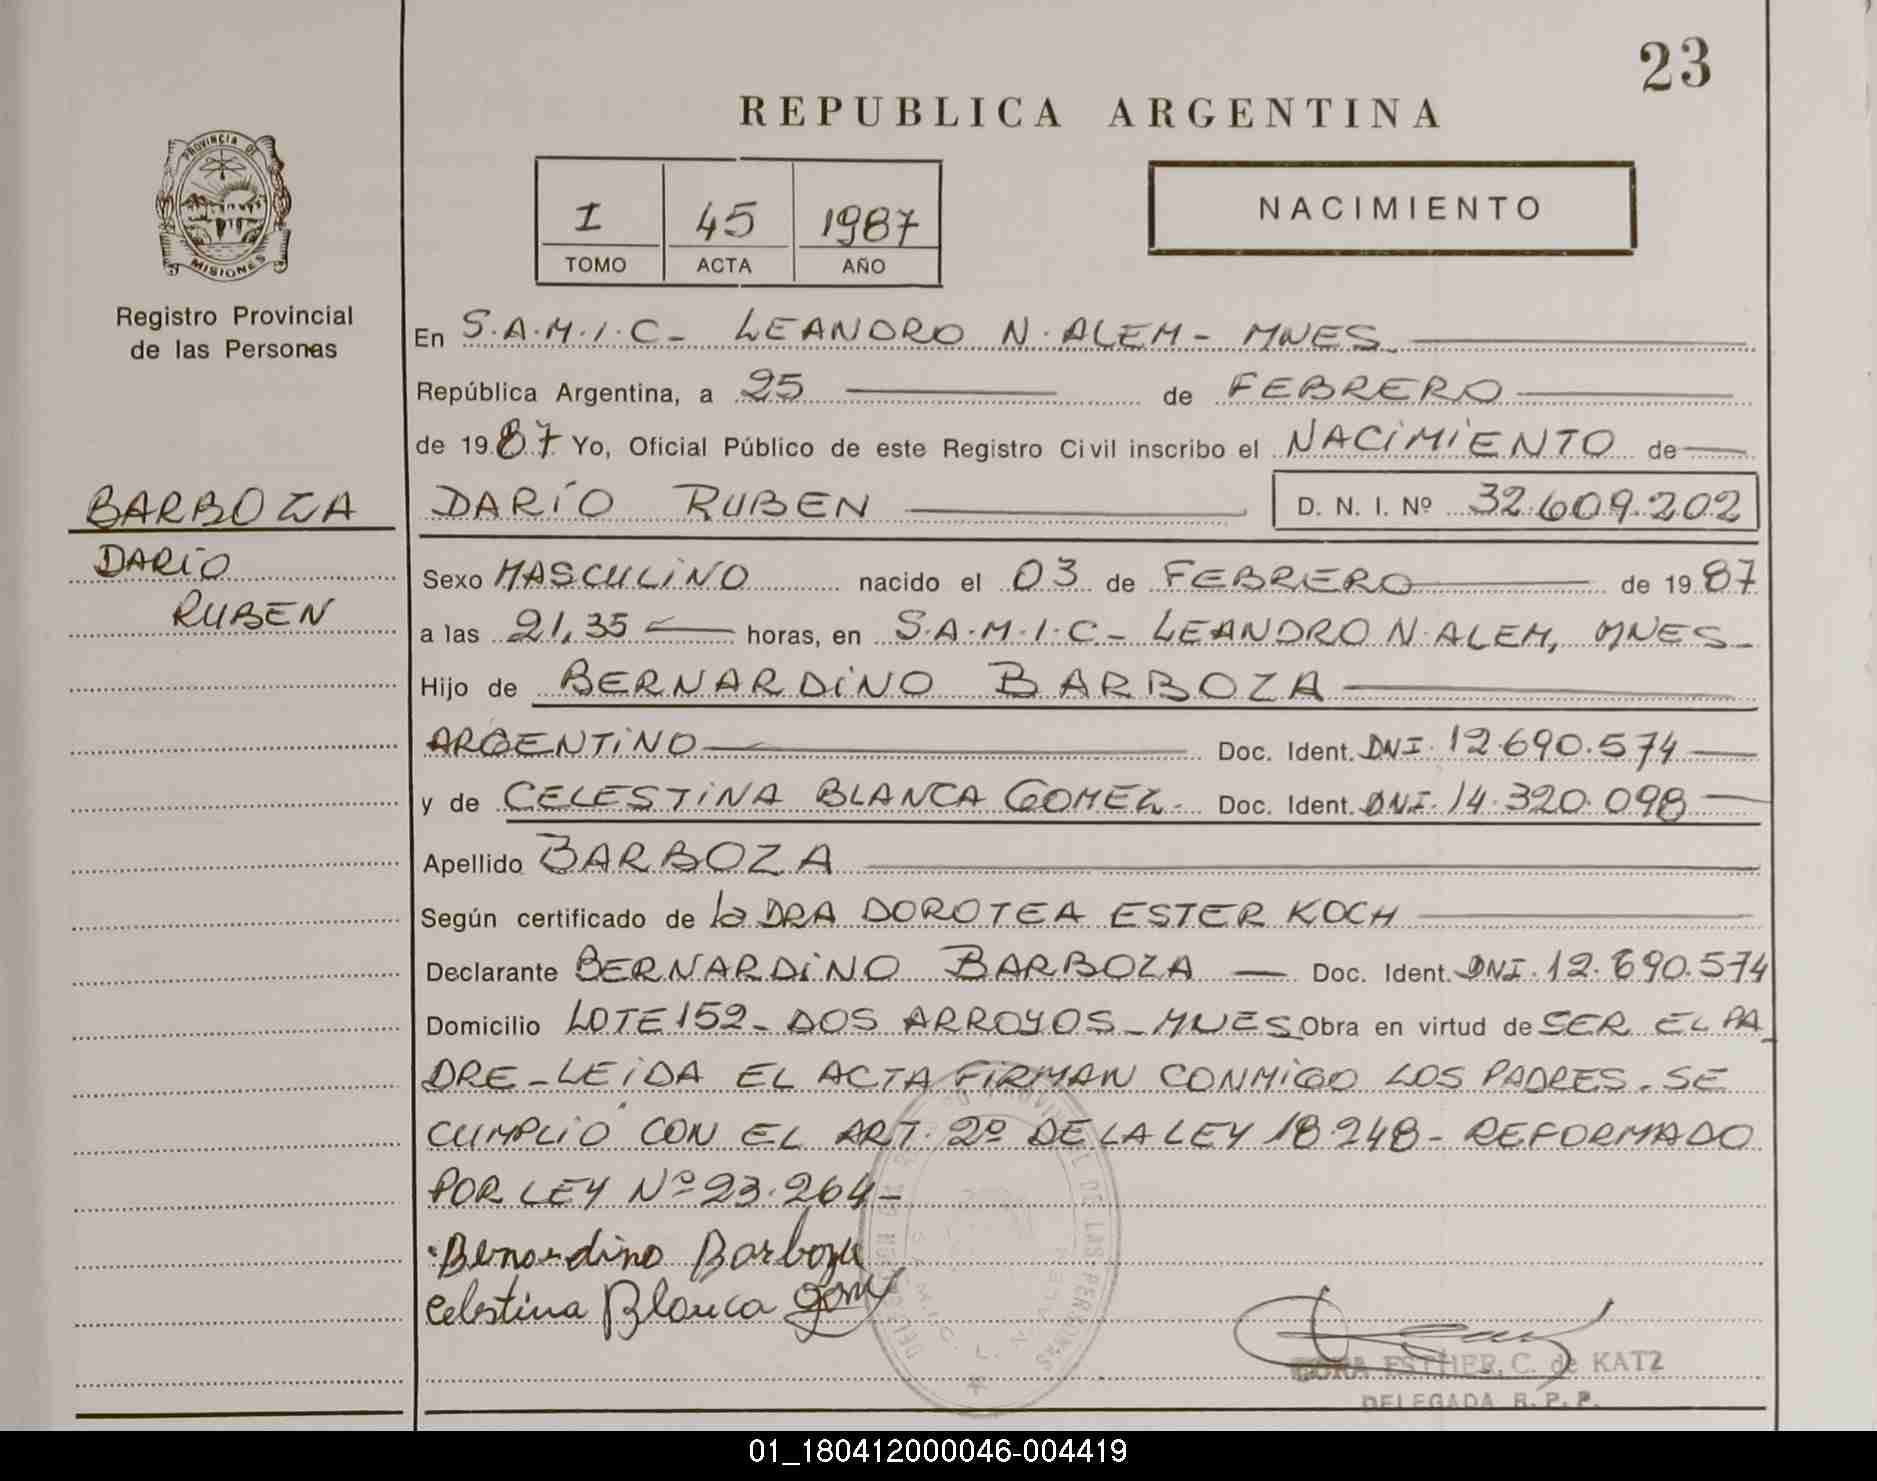 23
REPUBLICA ARGENTINA
PROVINCIA DE
MISIONES
Registro Provincial
de las Personas
I 45 1987
TOMO ACTA AÑO
NACIMIENTO
En S.A.M.I.C- LEANDRO N. ALEM- MNES
República Argentina, a 25 de FEBRERO
de 1987 Yo, Oficial Público de este Registro Civil inscribo el NACIMIENTO de
BARBOZA
DARIO
RUBEN
DARIO RUBEN D. N. I. Nº 32.609.202
Sexo MASCULINO nacido el 03 de FEBRERO de 1987
a las 21,35 horas, en S.A.M.I.C- LEANDRO N. ALEM, MNES-
Hijo de BERNARDINO BARBOZA
ARGENTINO Doc. Ident. DNI. 12.690.574
y de CELESTINA BLANCA GOMEZ- Doc. Ident. DNI. 14.320.098
Apellido BARBOZA
Según certificado de la DRA DOROTEA ESTER KOCH
Declarante BERNARDINO BARBOZA Doc. Ident. DNI. 12.690.574
Domicilio LOTE 152- DOS ARROYOS- MNES Obra en virtud de SER EL PA
DRE-LEIDA EL ACTA FIRMAN CONMIGO LOS PADRES. SE
CUMPLIÓ CON EL ART. 2º DE LA LEY 18.248- REFORMADO
POR LEY Nº 23.264-
Bernardino Barboza
Celestina Blanca
ESTHER. C. de KATZ
DELEGADA R. P. P.
01_180412000046-004419